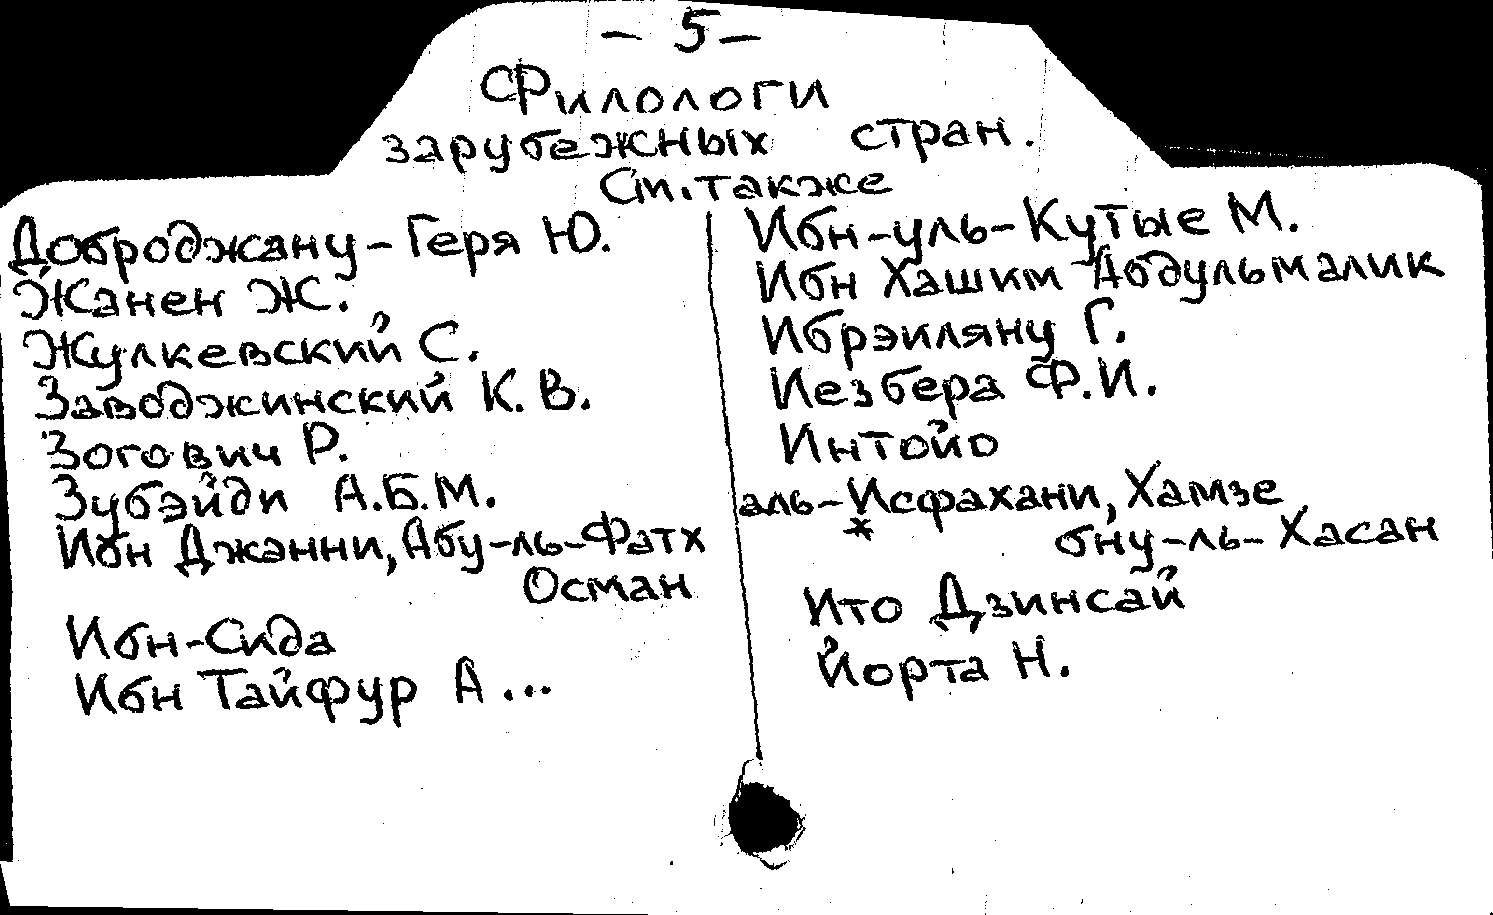 – 5 –
Филологи
зарубежных стран.
См. также
Доброджану-Геря Ю.
Жанен Ж.
Жулкевский С.
Заводжинский К. В.
Зогович Р.
Зубэйди А.Б.М.
Ибн Джанни, Абу-ль-Фатх
Осман
Ибн-Сида
Ибн Тайфур А...
Ибн-уль-Кутые М.
Ибн Хашим Абдульмалик
Ибрэиляну Г.
Иезбера Ф.И.
Интойо
аль-Исфахани, Хамзе
*
бну-ль-Хасан
Ито Дзинсай
Йорга Н.